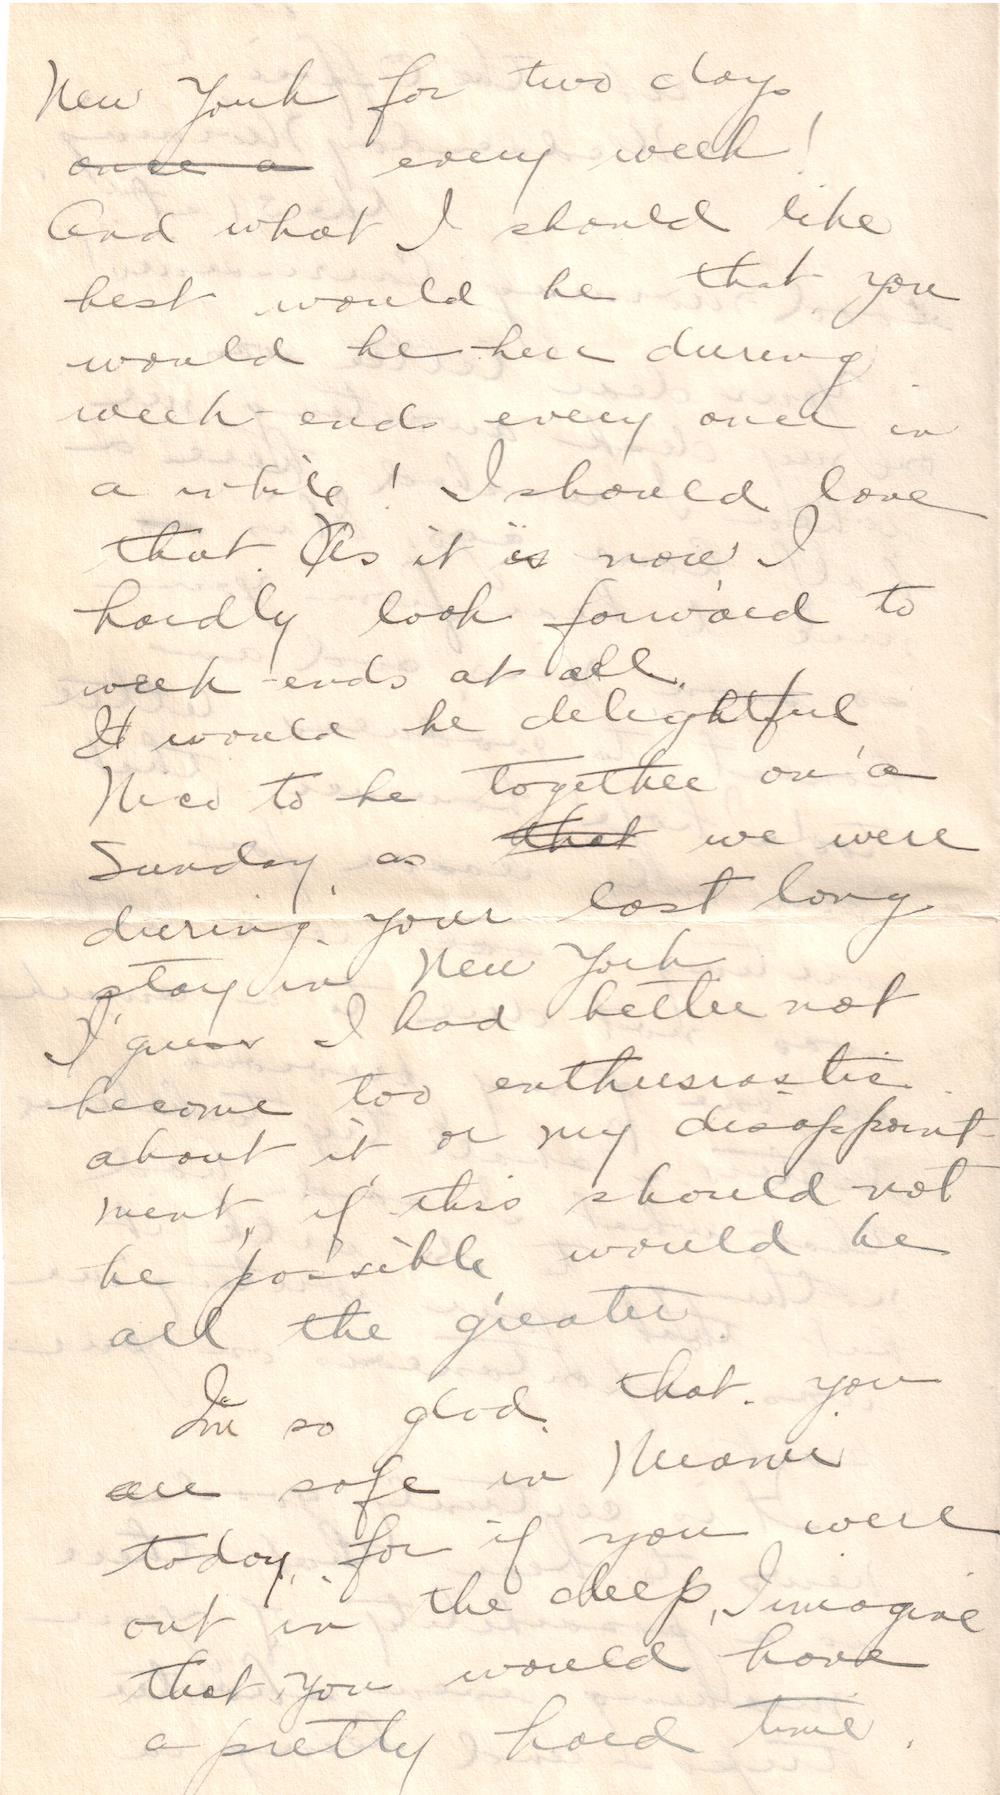 New York for two days
once a every week!
And what I should like
best would be that you
would be here during
week-ends every once in
a while! I should love
that. As it is now I
hardly look forward to
week-ends at all.
It would be delightful
to be together on a
Sunday as that we were
during your last long
stay in New York.
I guess I had better not
become too enthusiastic
about it or my disappoint
ment, if this should not
be possible would be
all the greater.
I'm so glad that you
are safe in Miami
today, for if you were
out in the deep, I imagine
that you would have
a pretty hard time.